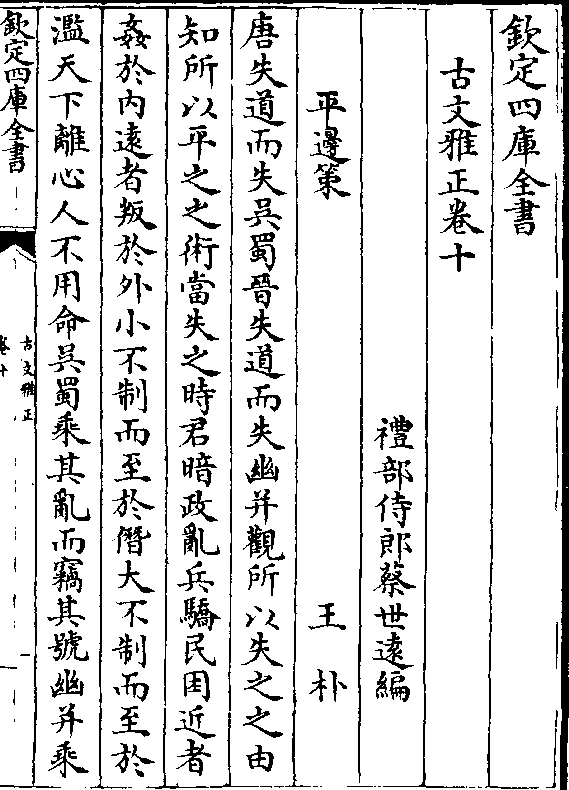 欽定四庫全書
古文雅正卷十
禮部侍郎蔡世遠編
平邊策　王朴
唐失道而失吳蜀晉失道而失幽并觀所以失之之由
知所以平之之術當失之時君暗政亂兵驕民困近者
姦於内逺者叛於外小不制而至於僭大不制而至於
濫天下離心人不用命吳蜀乘其亂而竊其號幽并乘
欽定四庫全書
古文雅正
卷十